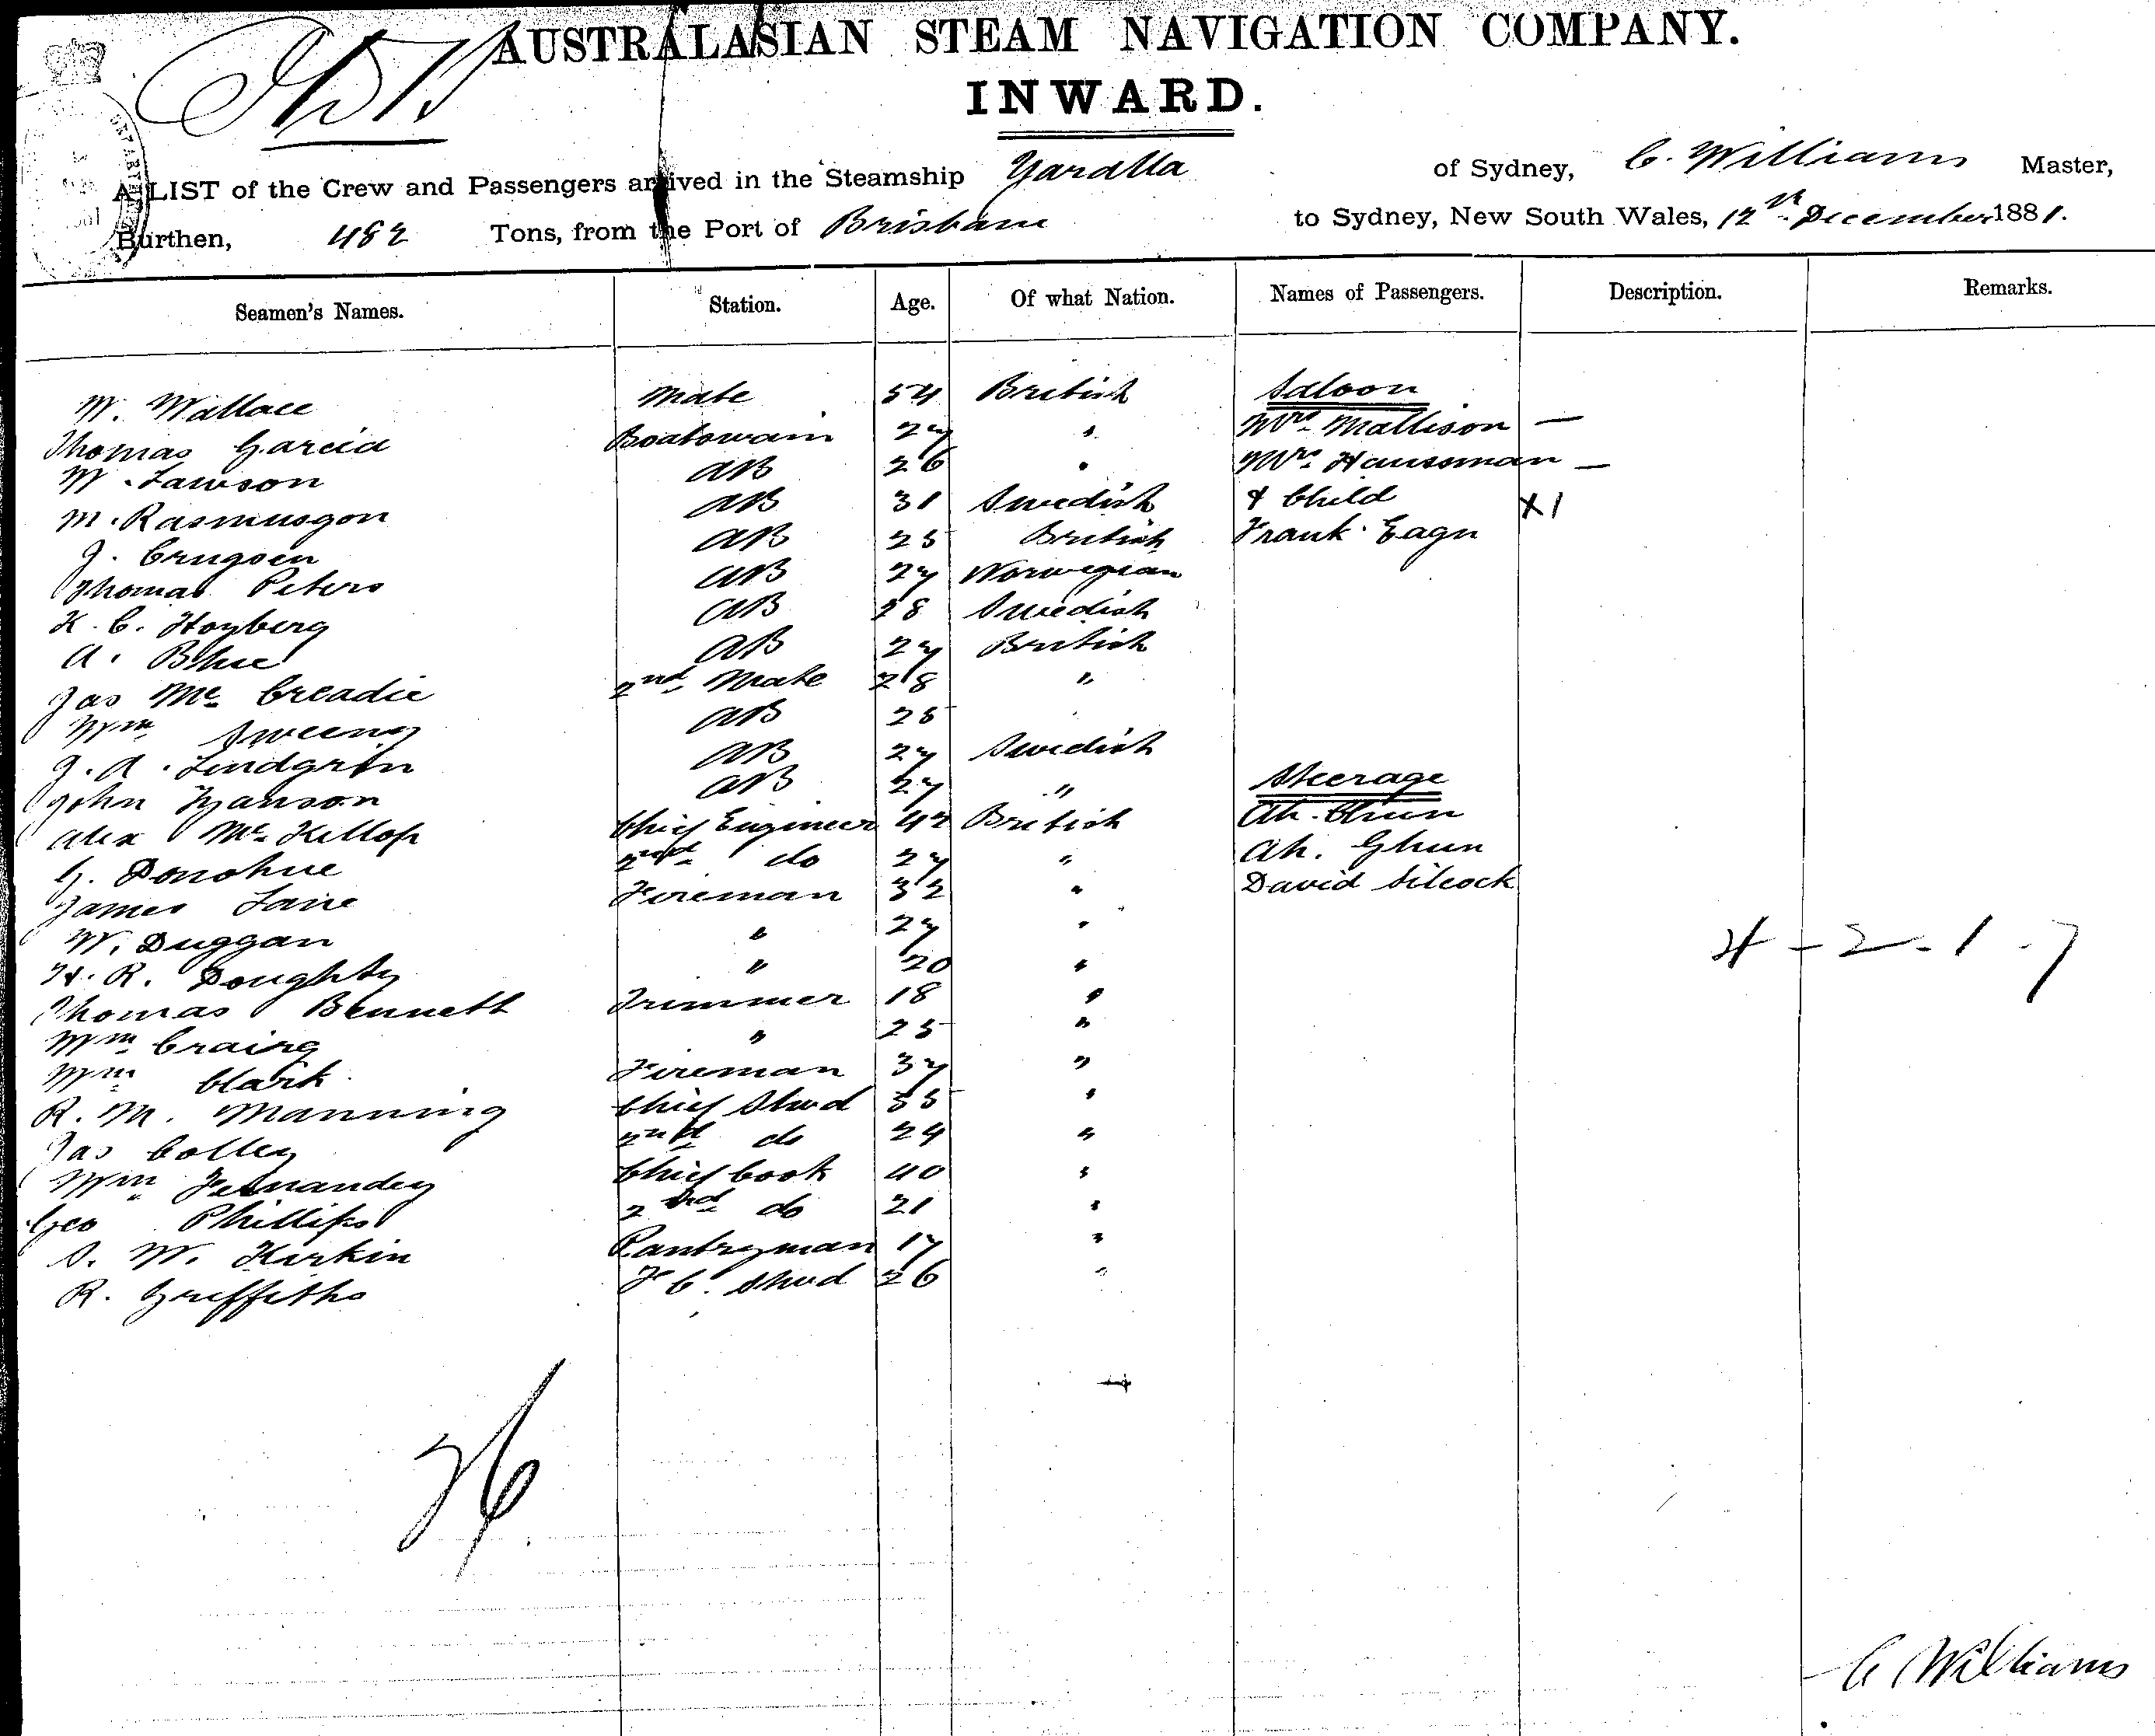 AUSTRALASIAN STEAM NAVIGATION COMPANY.
INWARD.
A LIST of the Crew and Passengers arrived in the Steamship Yaralla of Sydney, C. Williams Master,
Burthen, 482 Tons, from the Port of Brisbane to Sydney, New South Wales, 12th December 1881.
Seamen's Names. Station. Age. Of what Nation. Names of Passengers. Description. Remarks.
W. Wallace Mate 54 British Saloon
Thomas Garcia Boatswain 27 " Mrs. Mallison —
W. Lawson AB 26 " Mrs. Haussman —
M. Rasmusson AB 31 Swedish & Child X1
J. Crugsen AB 25 British Frank Eagn
Thomas Peters AB 27 Norwegian
K. C. Hoyberg AB 28 Swedish
A. Blue AB 27 British
Jas Mc Creadie 2nd Mate 28 "
Wm Sweeny AB 25
J. A. Lindgren AB 27 Swedish
John Hanson AB 27 " Steerage
Alex Mc Killop Chief Engineer 42 British Ah. Chun
G. Donohue 2nd do 27 " Ah. Ghun
James Lane Fireman 32 " David Silcock
W. Duggan " 27 "
H. R. Doughty " 20 " 4 - 2 - 1 - 7
Thomas Bennett Trimmer 18 "
Wm Craig " 25 "
Wm Clark Fireman 37 "
R. M. Manning Chief Stwd 35 "
Jas Colley 2nd do 24 "
Wm Fernandez Chief Cook 40 "
Geo Phillips 2nd do 21 "
S. W. Kirkin Pantryman 17 "
R. Griffiths F C. Stwd 26 "
26
C Williams